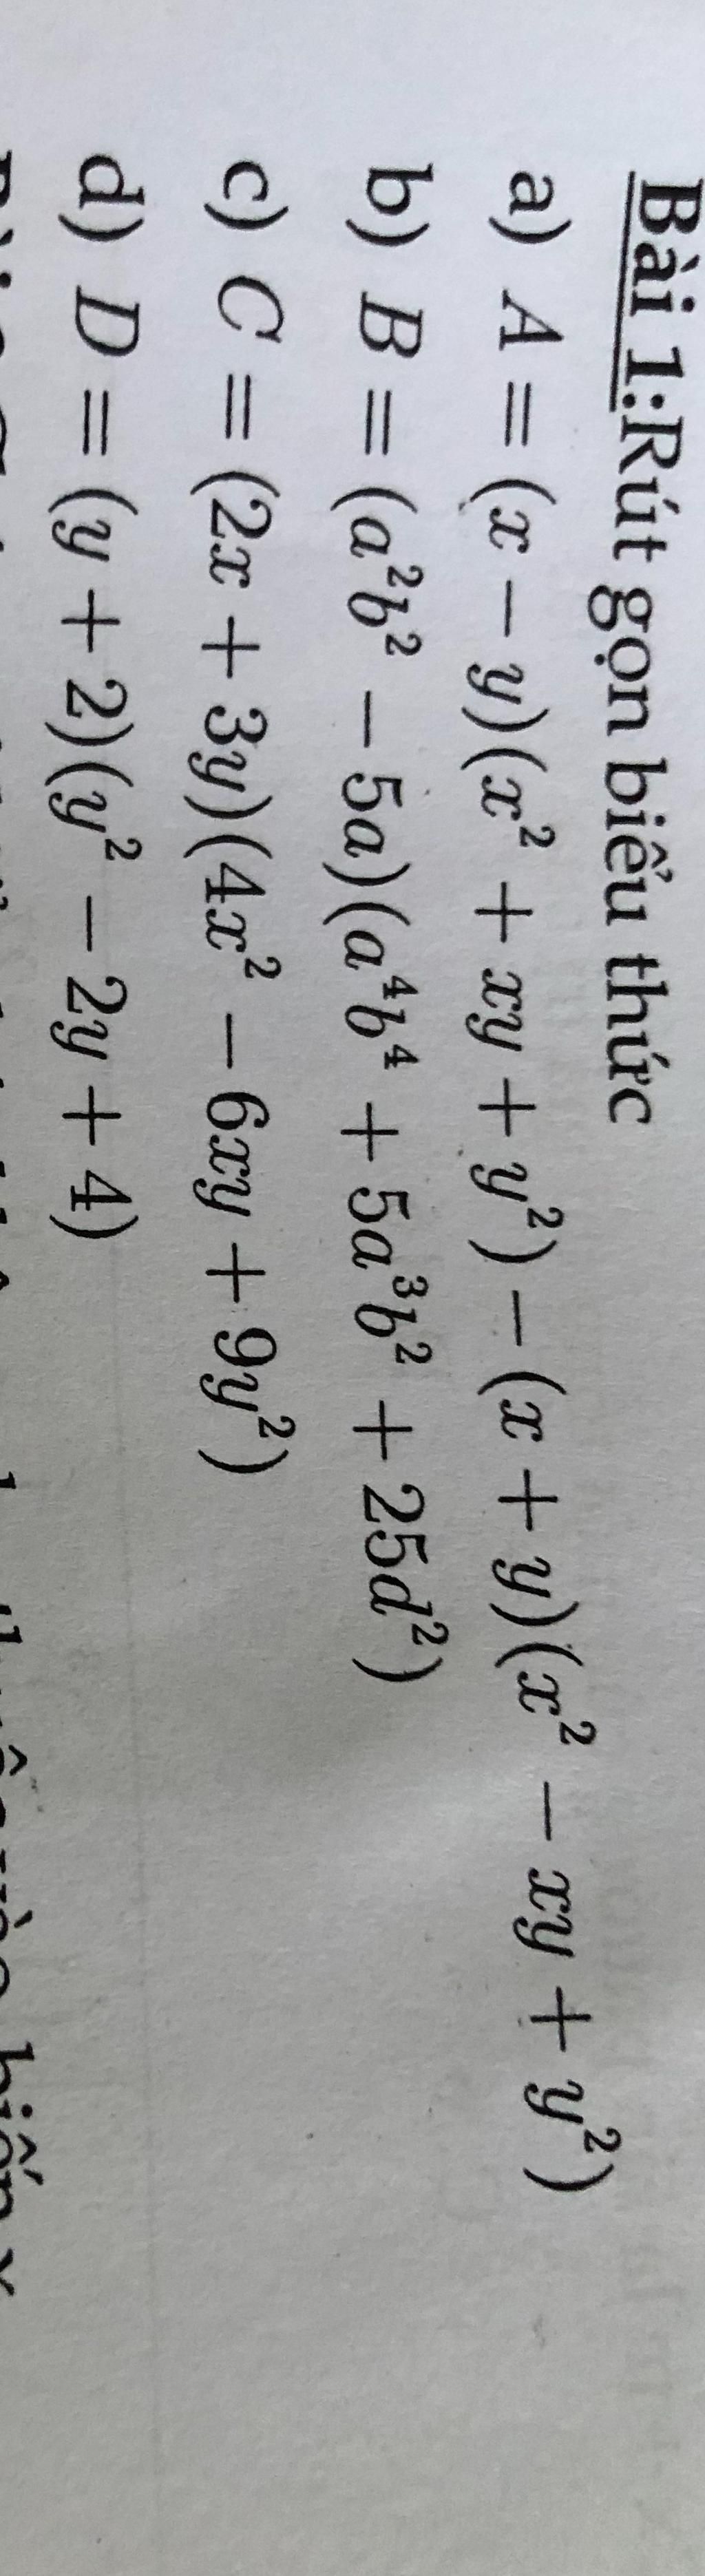 Bài 1:Rút gọn biểu thức
a) A = (x − y)(x² + xy + y²) − (x + y)(x² − xy + y²)
b) B = (a²b² − 5a)(a⁴b⁴ + 5a³b² + 25d²)
c) C = (2x + 3y)(4x² − 6xy + 9y²)
d) D = (y + 2)(y² − 2y + 4)